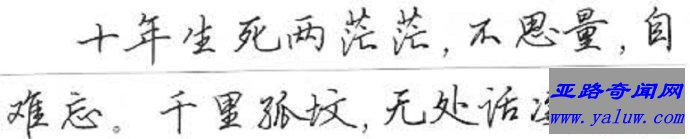 十年生死两茫茫，不思量，自
难忘。千里孤坟，无处话
亚路奇闻网
www.yaluw.com